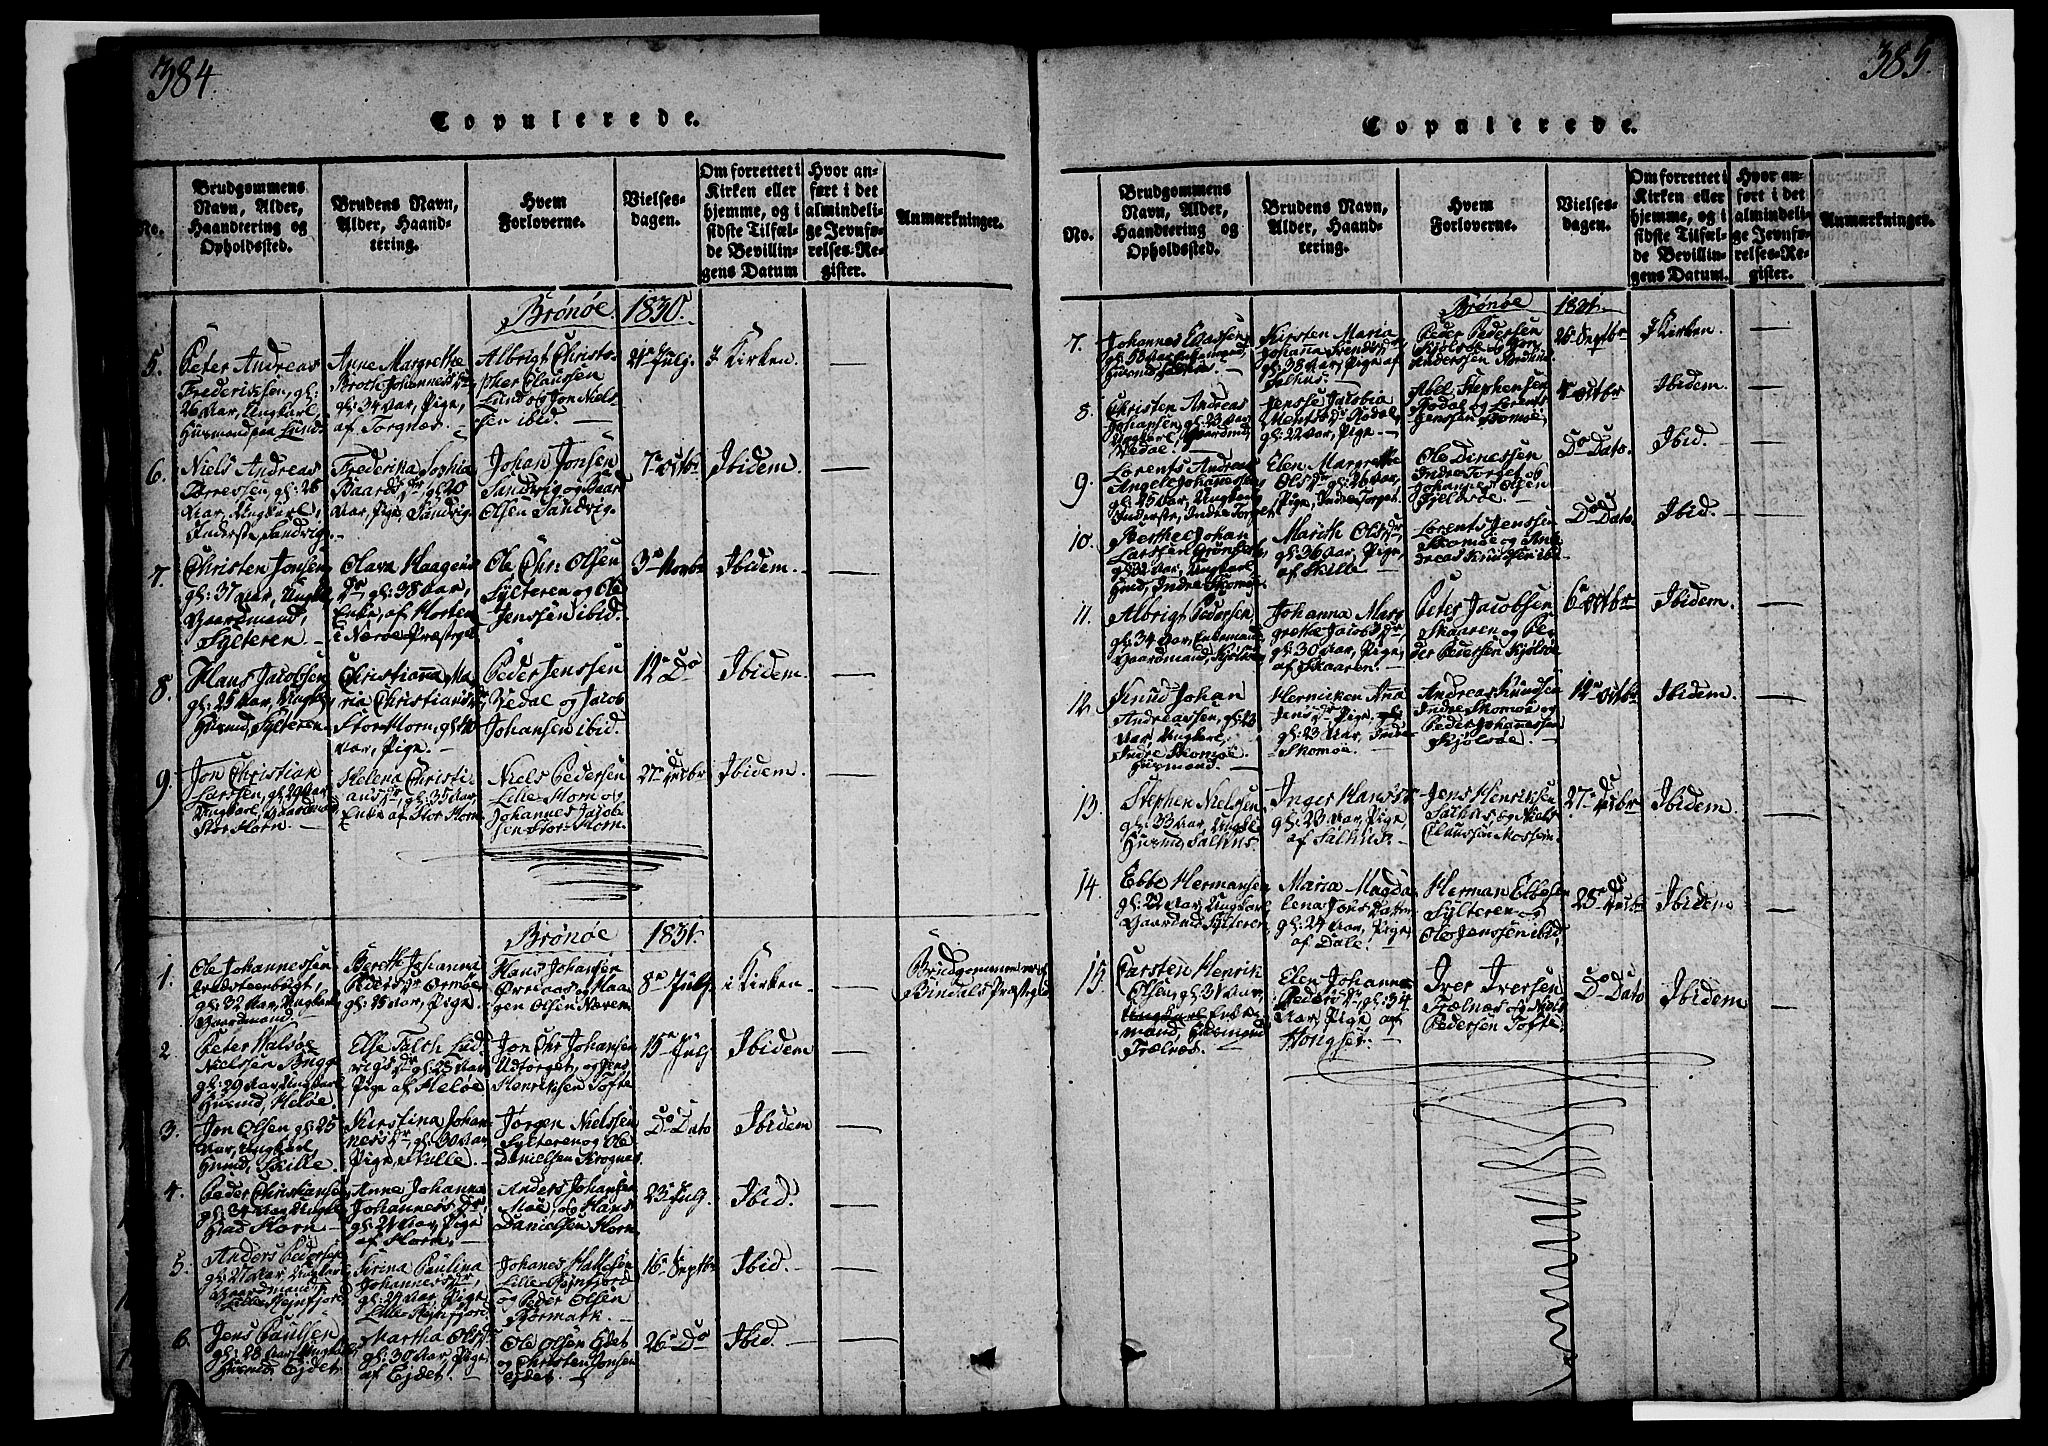 384.
Copulerede.
No.
Brudgommens Navn, Alder, Haandtering og Opholdssted.
Brudens Navn, Alder, Haandtering.
Hvem Forloverne.
Vielsesdagen.
Om forrettet i Kirken eller hjemme, og i sidste Tilfælde Bevillingens Datum
Hvor anført i det almindelige Jevnførelses-Register.
Anmærkninger.
Brønøe 1830.
5.
Peter Andreas
Frederikssen, gl:
26 Aar, Ungkarl,
Huusmand paa Lund.
Anne Margrethe
Johannesdr
gl: 34 Aar, Pige,
af Torgnæs.
Albrigt Christo-
pher Claussen
Lund og Jon Niels-
sen ibid.
21de Julj.
I Kirken.
6.
Niels Andreas
Torressen, gl: 26
Aar, Ungkarl,
Inderste, Sandvig.
Frederika Sophia
Baardsdr, gl: 20
Aar, Pige, Sandvig.
Johan Jonsen
Sandvig og Baard
Olsen Sandvig.
7de Octbr
Ibidem.
7.
Christen Jonsen
gl: 37 Aar, Ungkl,
Gaardmand,
Sylteren.
Olava Haagens
dr gl: 38 Aar,
Enke, af Horten
i Nærøe Præstegl.
Ole Chr: Olsen
Sylteren og Ole
Jenssen ibid.
3de Novbr
Ibidem.
8.
Hans Jacobsen
gl: 25 Aar, Ungkl,
Huusmd, Sylteren.
Christianna Ma-
ria Christiansdr
Stor Horn, gl: 40
Aar, Pige.
Peder Jenssen
Vedal og Jacob
Johansen ibid.
12te Do
Ibidem.
9.
Jon Christian
Larssen, gl: 29 Aar
Ungkarl, Gaardmand
Stor Horn.
Helena Christi-
ansdr, gl: 35 Aar,
Enke af Stor Horn.
Niels Pedersen
Lille-Horn og
Johannes Jacob-
sen Stor-Horn.
27de Decbr
Ibidem.
Brønøe 1831.
1.
Ole Johannessen
gl: 22 Aar, Ungkarl
Gaardmand.
Berethe Johanna
Pedersdr Ormøe
gl: 25 Aar, Pige.
Hans Johansen
og Haa-
gen Olsen Nævern
8de Julj
i Kirken
Brudgommen er af
Bindals Præstegl
2.
Peter Waldøe
Nielssen Brygge
gl: 29 Aar, Ungkarl
Huusmd, Heløe.
Else Falch Lud-
vigsdr gl: 25 Aar
Pige af Heløe
Jon Chr Johansen
Udtorget, og Jens
Henrikssen Tofte
15de Julj
Ibidem
3.
Jon Olsen gl: 25
Aar, Ungkarl,
Huusmd, Skille.
Kirstina Johan-
nesdr, gl: 30 Aar
Pige, Skille.
Jørgen Nielssen
Sylteren og Ole
Danielsen Krognes
Do Dato
Ibidem
4.
Peder Christiansen
gl: 34 Aar, Ungkl
Horn
Anne Johanna
Johannesdr,
gl: 24 Aar, Pige
af Horn.
Anders Johansen
Moe, og Hans
Danielsen Horn
23de Julj.
Ibid.
5.
Anders Pedersen
gl: 27 Aar, Ungkarl
Gaardmand
Lille-Stenfjord
Sirina Paulina
Johannesdr,
gl: 24 Aar, Pige
Lille-Stenfjord
Johannes
Lille-Stenfjord
og Peder Olsen
Tormark.
16de Septbr
Ibid.
6.
Jens Paulsen
gl: 28 Aar, Ungkarl
Huusmd Ejdet
Martha Olsdr
gl: 30 Aar, Pige
af Ejdet.
Ole Olsen Ejdet
og Christen Jonsen
Ejdet.
26de Do
Ibid.
385.
Copulerede.
No.
Brudgommens Navn, Alder, Haandtering og Opholdssted.
Brudens Navn, Alder, Haandtering.
Hvem Forloverne.
Vielsesdagen.
Om forrettet i Kirken eller hjemme, og i sidste Tilfælde Bevillingens Datum.
Hvor anført i det almindelige Jevnførelses-Register.
Anmærkninger.
Brønøe 1831.
7.
Johannes Claussen
gl: 58 Aar,
Huusmd
Kirsten Maria
Johanna
gl: 38 Aar, Pige af
Salhus.
Peder Pedersen
Kjølsøe og
Anderssen
26de Septbr
I Kirken.
8.
Christen Andreas
Johansen, gl: 23 Aar
Ungkarl, Gaardmd,
Vedal.
Jensse Jacobia
Mentsdr Rodal
gl: 22 Aar, Pige
Abel Stephensen
Rodal og Lorents
Jenssen Skomøe
4de Octbr
Ibidem
9.
Lorents Andreas
Angel Johannessen
gl: 25 Aar, Ungkarl
Inderste, Indre Torget
Elen Margrethe
Olsdr gl: 26 Aar,
Pige, Indre Torget
Ole Dinessen
Indre Torget og
Johannes Olsen
Do Dato.
Ibid.
10.
Berthel Johan
Larssen
gl: 32 Aar, Ungkarl
Huusmd, Indre Skomøe.
Marith Olsdr
gl: 36 Aar, Pige,
af Skille
Lorents Jenssen
Skomøe og And-
reas Knudsen ibid.
Do Dato
Ibid.
11.
Albrigt Pedersen
gl: 34 Aar, Enkemand
Gaardmand, Kjølsøe
Johanna Mar-
grethe Jacobsdr,
gl: 30 Aar, Pige,
af Skaaren.
Peter Jacobsen
Skaaren og Pe-
der Pedersen Kjølsøe
6te Octbr
Ibidem
12.
Knud Johan
Andreassen, gl: 23
Aar Ungkarl,
Indre Skomøe
Huusmand.
Hernicken Anna
Jensdr Pige,
gl: 23 Aar, Indre
Skomøe.
Andreas Knudsen
Indre Skomøe og
Peder Johannessen
Kjølsøe.
14de Octbr
Ibidem.
13.
Stephen Nielssen
gl: 33 Aar, Ungkl
Huusmd Salhus.
Inger Hansdr
gl: 23 Aar, Pige,
af Salhus.
Jens Henriksen
Salhus, og Niels
Claussen Mossem.
27de Decbr
Ibidem.
14.
Ebbe Hermansen
gl: 22 Aar, Ungkarl
Gaardmd Sylteren
Maria Magda-
lena Jons Datter
gl: 24 Aar, Pige
af Dale.
Herman Ebbesen
Sylteren og
Ole Jenssen ibid.
28de Decbr
Ibidem
15.
Carsten Henrik
Olsen, gl: 31 Aar
Ungkarl Enke-
mand, Huusmand
Trælnæs.
Elen Johanna
Pedersdr, gl: 34
Aar, Pige af
Hongset.
Iver Iversen
Trælnæs og Niels
Pedersen Tofte
Do Dato
Ibidem